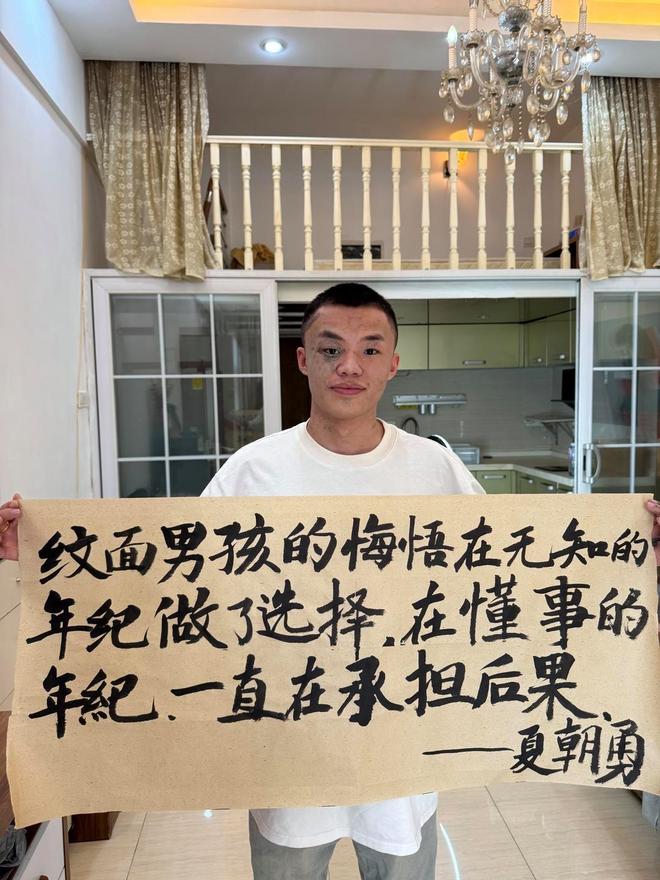 纹面男孩的悔悟在无知的
年纪做了选择、在懂事的
年紀、一直在承担后果、
——夏朝勇